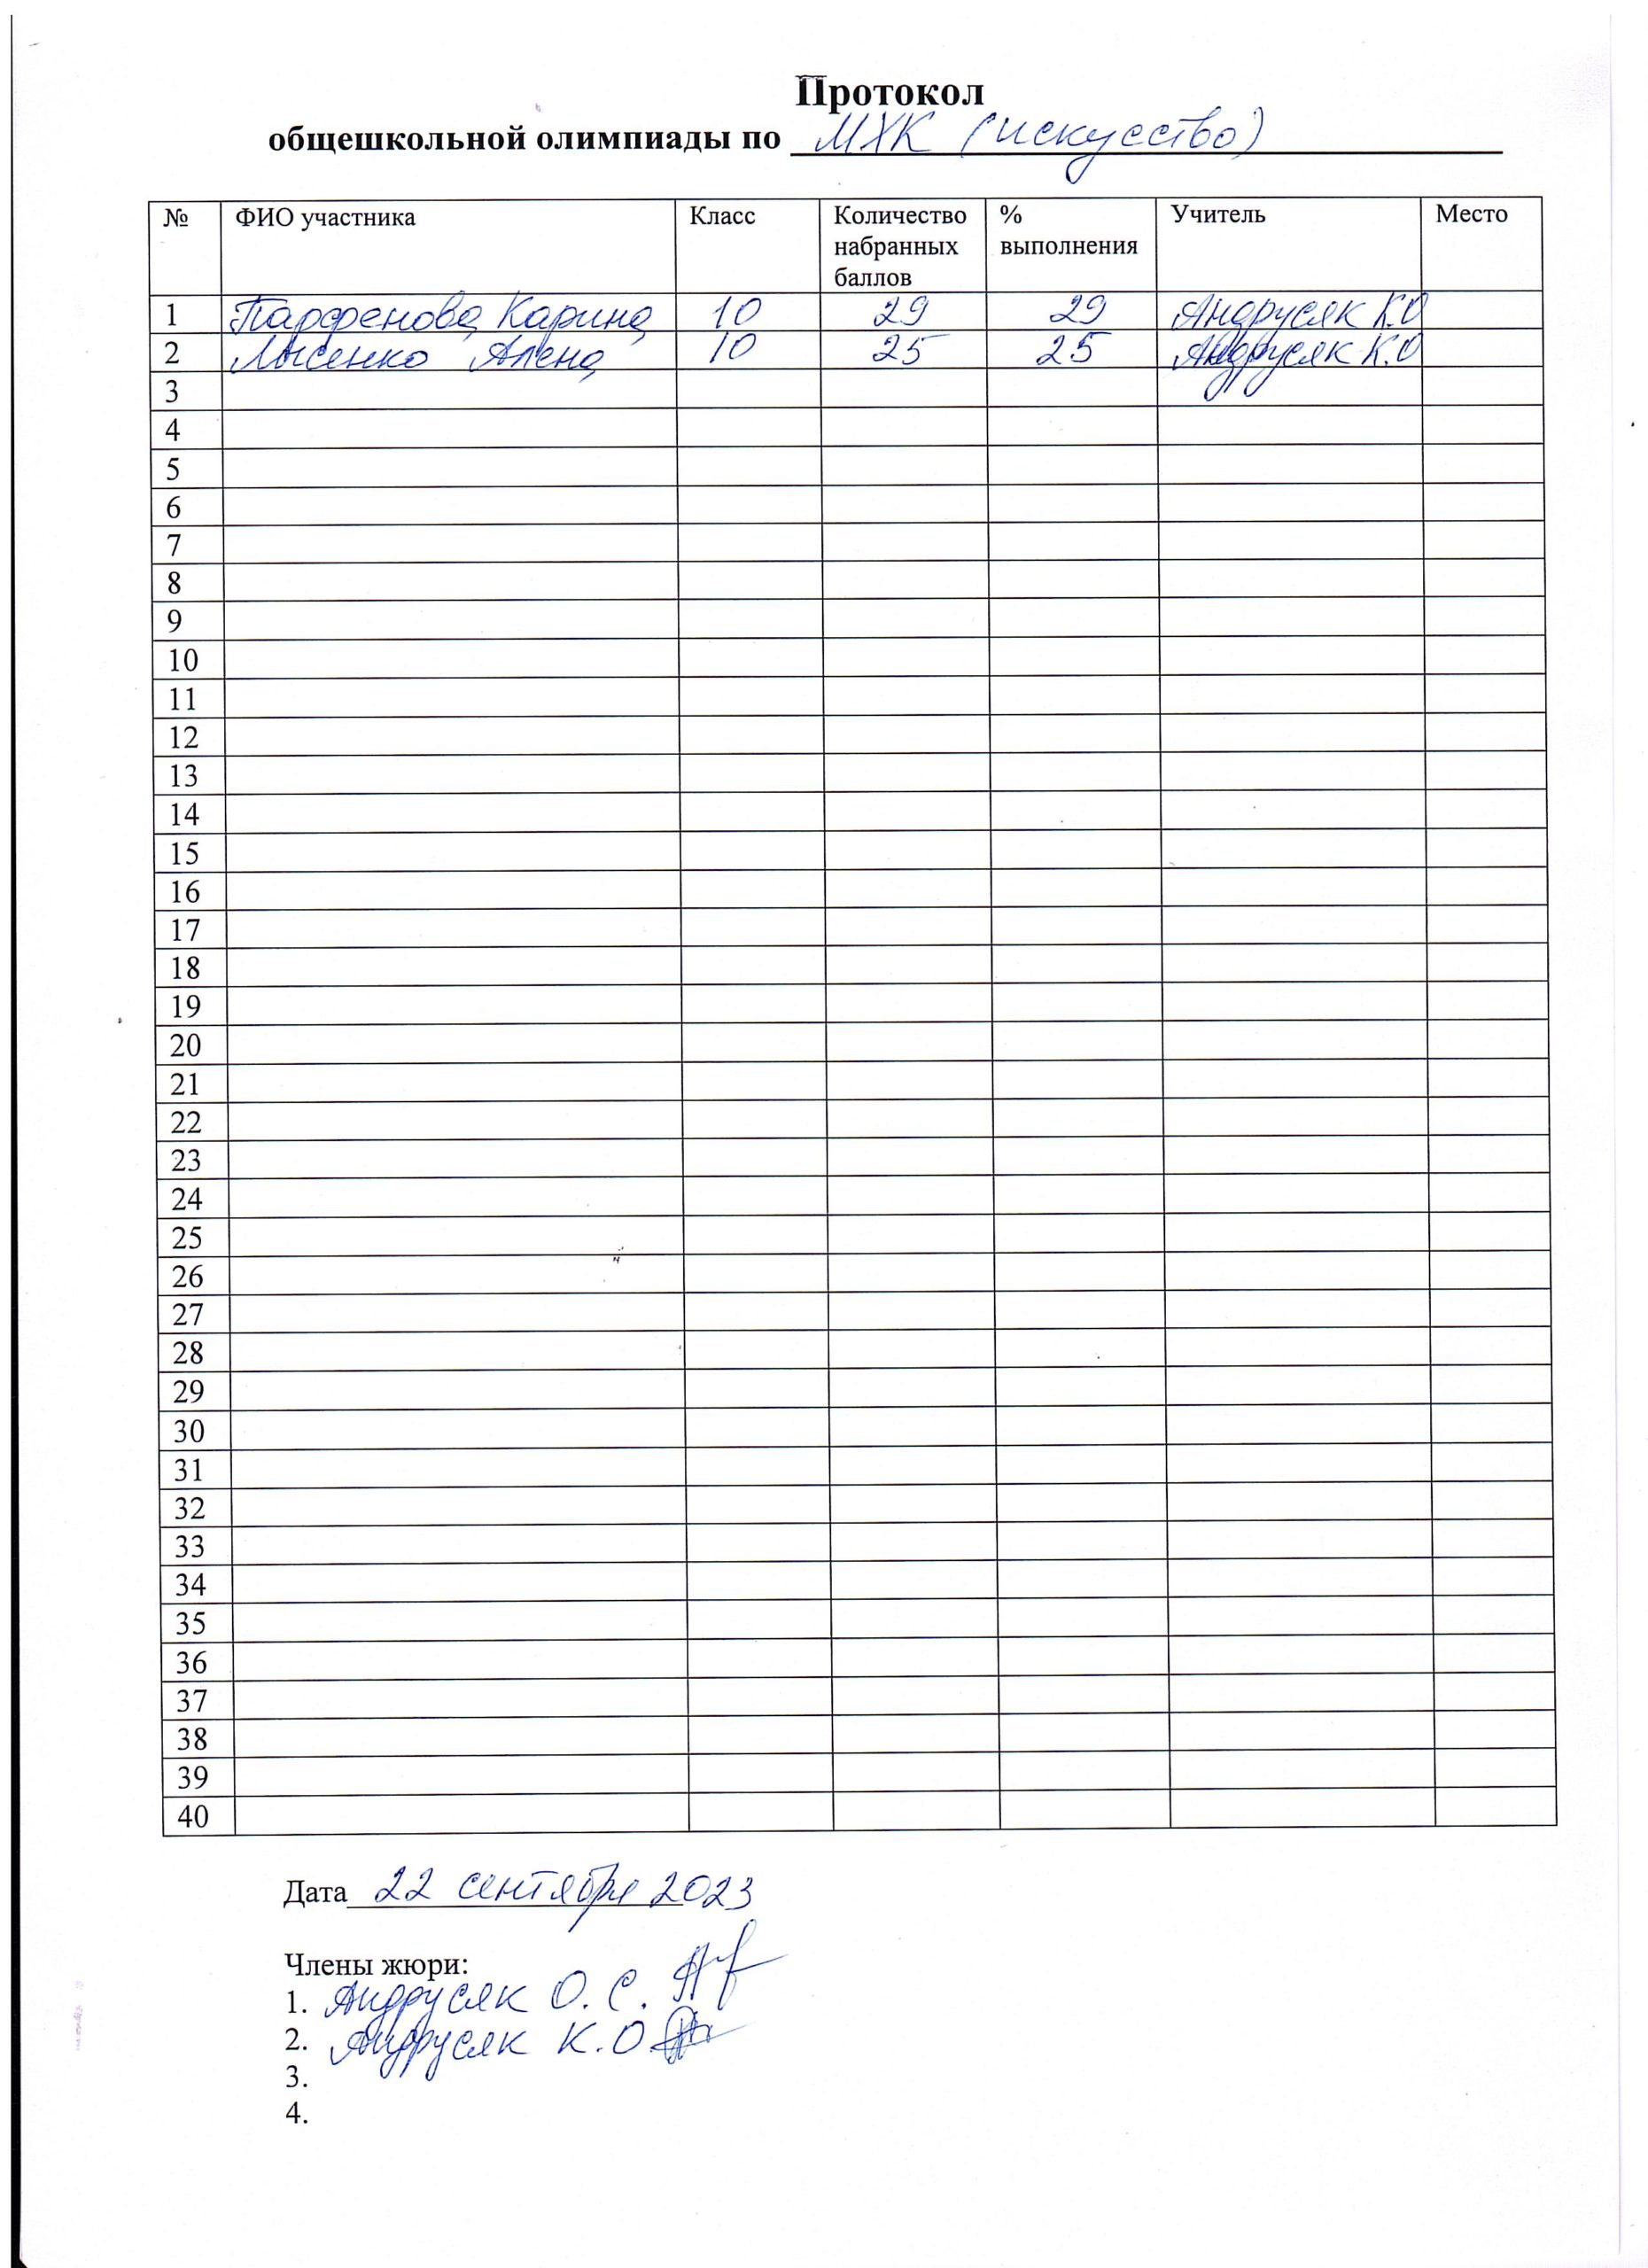 Протокол
общешкольной олимпиады по МХК (искусство)
№ ФИО участника Класс Количество набранных баллов % выполнения Учитель Место
1 Парфенова Карина 10 29 29 Андрусяк К.О
2 Лысенко Алена 10 25 25 Андрусяк К.О
3
4
5
6
7
8
9
10
11
12
13
14
15
16
17
18
19
20
21
22
23
24
25
26
27
28
29
30
31
32
33
34
35
36
37
38
39
40
Дата 22 сентября 2023
Члены жюри:
1. Андрусяк О. С.
2. Андрусяк К.О.
3.
4.